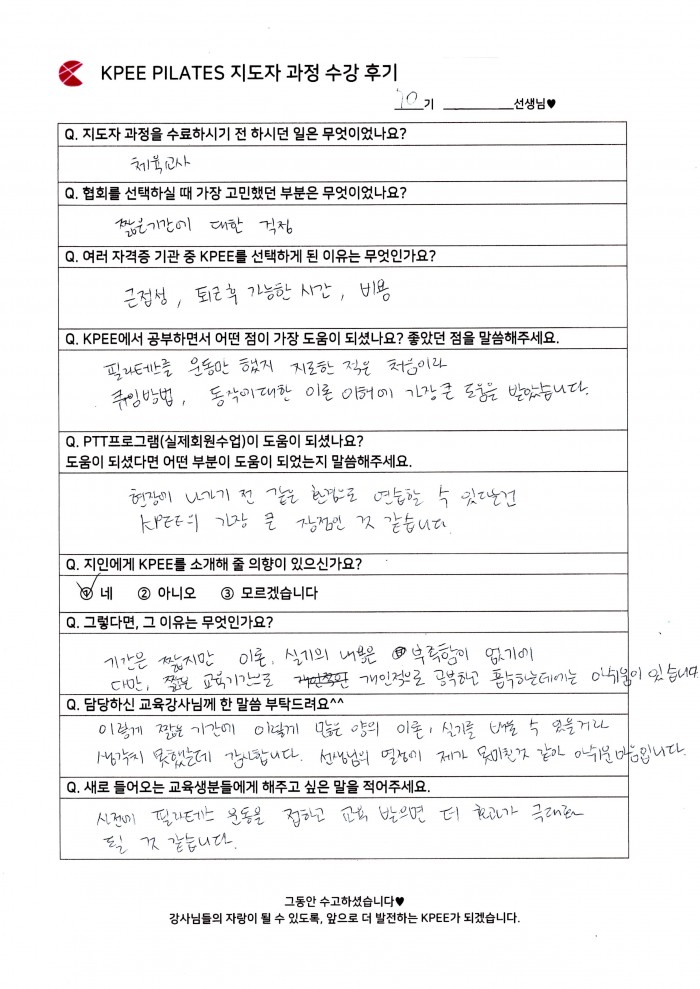 KPEE PILATES 지도자 과정 수강 후기
70기 선생님♥
Q. 지도자 과정을 수료하시기 전 하시던 일은 무엇이었나요?
체육교사
Q. 협회를 선택하실 때 가장 고민했던 부분은 무엇이었나요?
짧은기간에 대한 걱정
Q. 여러 자격증 기관 중 KPEE를 선택하게 된 이유는 무엇인가요?
근접성, 퇴근후 가능한 시간, 비용
Q. KPEE에서 공부하면서 어떤 점이 가장 도움이 되셨나요? 좋았던 점을 말씀해주세요.
필라테스를 운동만 했지 지도한 적은 처음이라
큐잉방법, 동작에대한 이론 이해에 가장큰 도움을 받았습니다.
Q. PTT프로그램(실제회원수업)이 도움이 되셨나요?
도움이 되셨다면 어떤 부분이 도움이 되었는지 말씀해주세요.
현장에 나가기 전 같은 환경으로 연습할 수 있다는건
KPEE의 가장 큰 장점인 것 같습니다.
Q. 지인에게 KPEE를 소개해 줄 의향이 있으신가요?
① 네 ② 아니오 ③ 모르겠습니다
Q. 그렇다면, 그 이유는 무엇인가요?
기간은 짧지만 이론, 실기의 내용은 부족함이 없기에
다만, 짧은 교육기간으로 개인적으로 공부하고 흡수하는데에는 아쉬움이 있습니다
Q. 담당하신 교육강사님께 한 말씀 부탁드려요^^
이렇게 짧은 기간에 이렇게 많은 양의 이론, 실기를 배울 수 있을거라
생각지 못했는데 감사합니다. 선생님의 열정에 제가 못미친것 같아 아쉬운 마음입니다.
Q. 새로 들어오는 교육생분들에게 해주고 싶은 말을 적어주세요.
사전에 필라테스 운동을 접하고 교육 받으면 더 효과가 극대화
될 것 같습니다.
그동안 수고하셨습니다♥
강사님들의 자랑이 될 수 있도록, 앞으로 더 발전하는 KPEE가 되겠습니다.